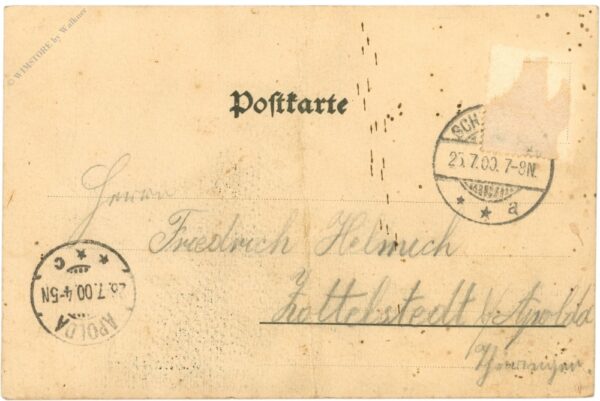 © WIMSTORE by Walkner
Postkarte
SCH
25.7.00.7-8N.
* * a
Herrn
Friedrich Helmich
Zottelstedt b/Apolda
Thüringen
APOLDA
26.7.00.4-5N
* * c